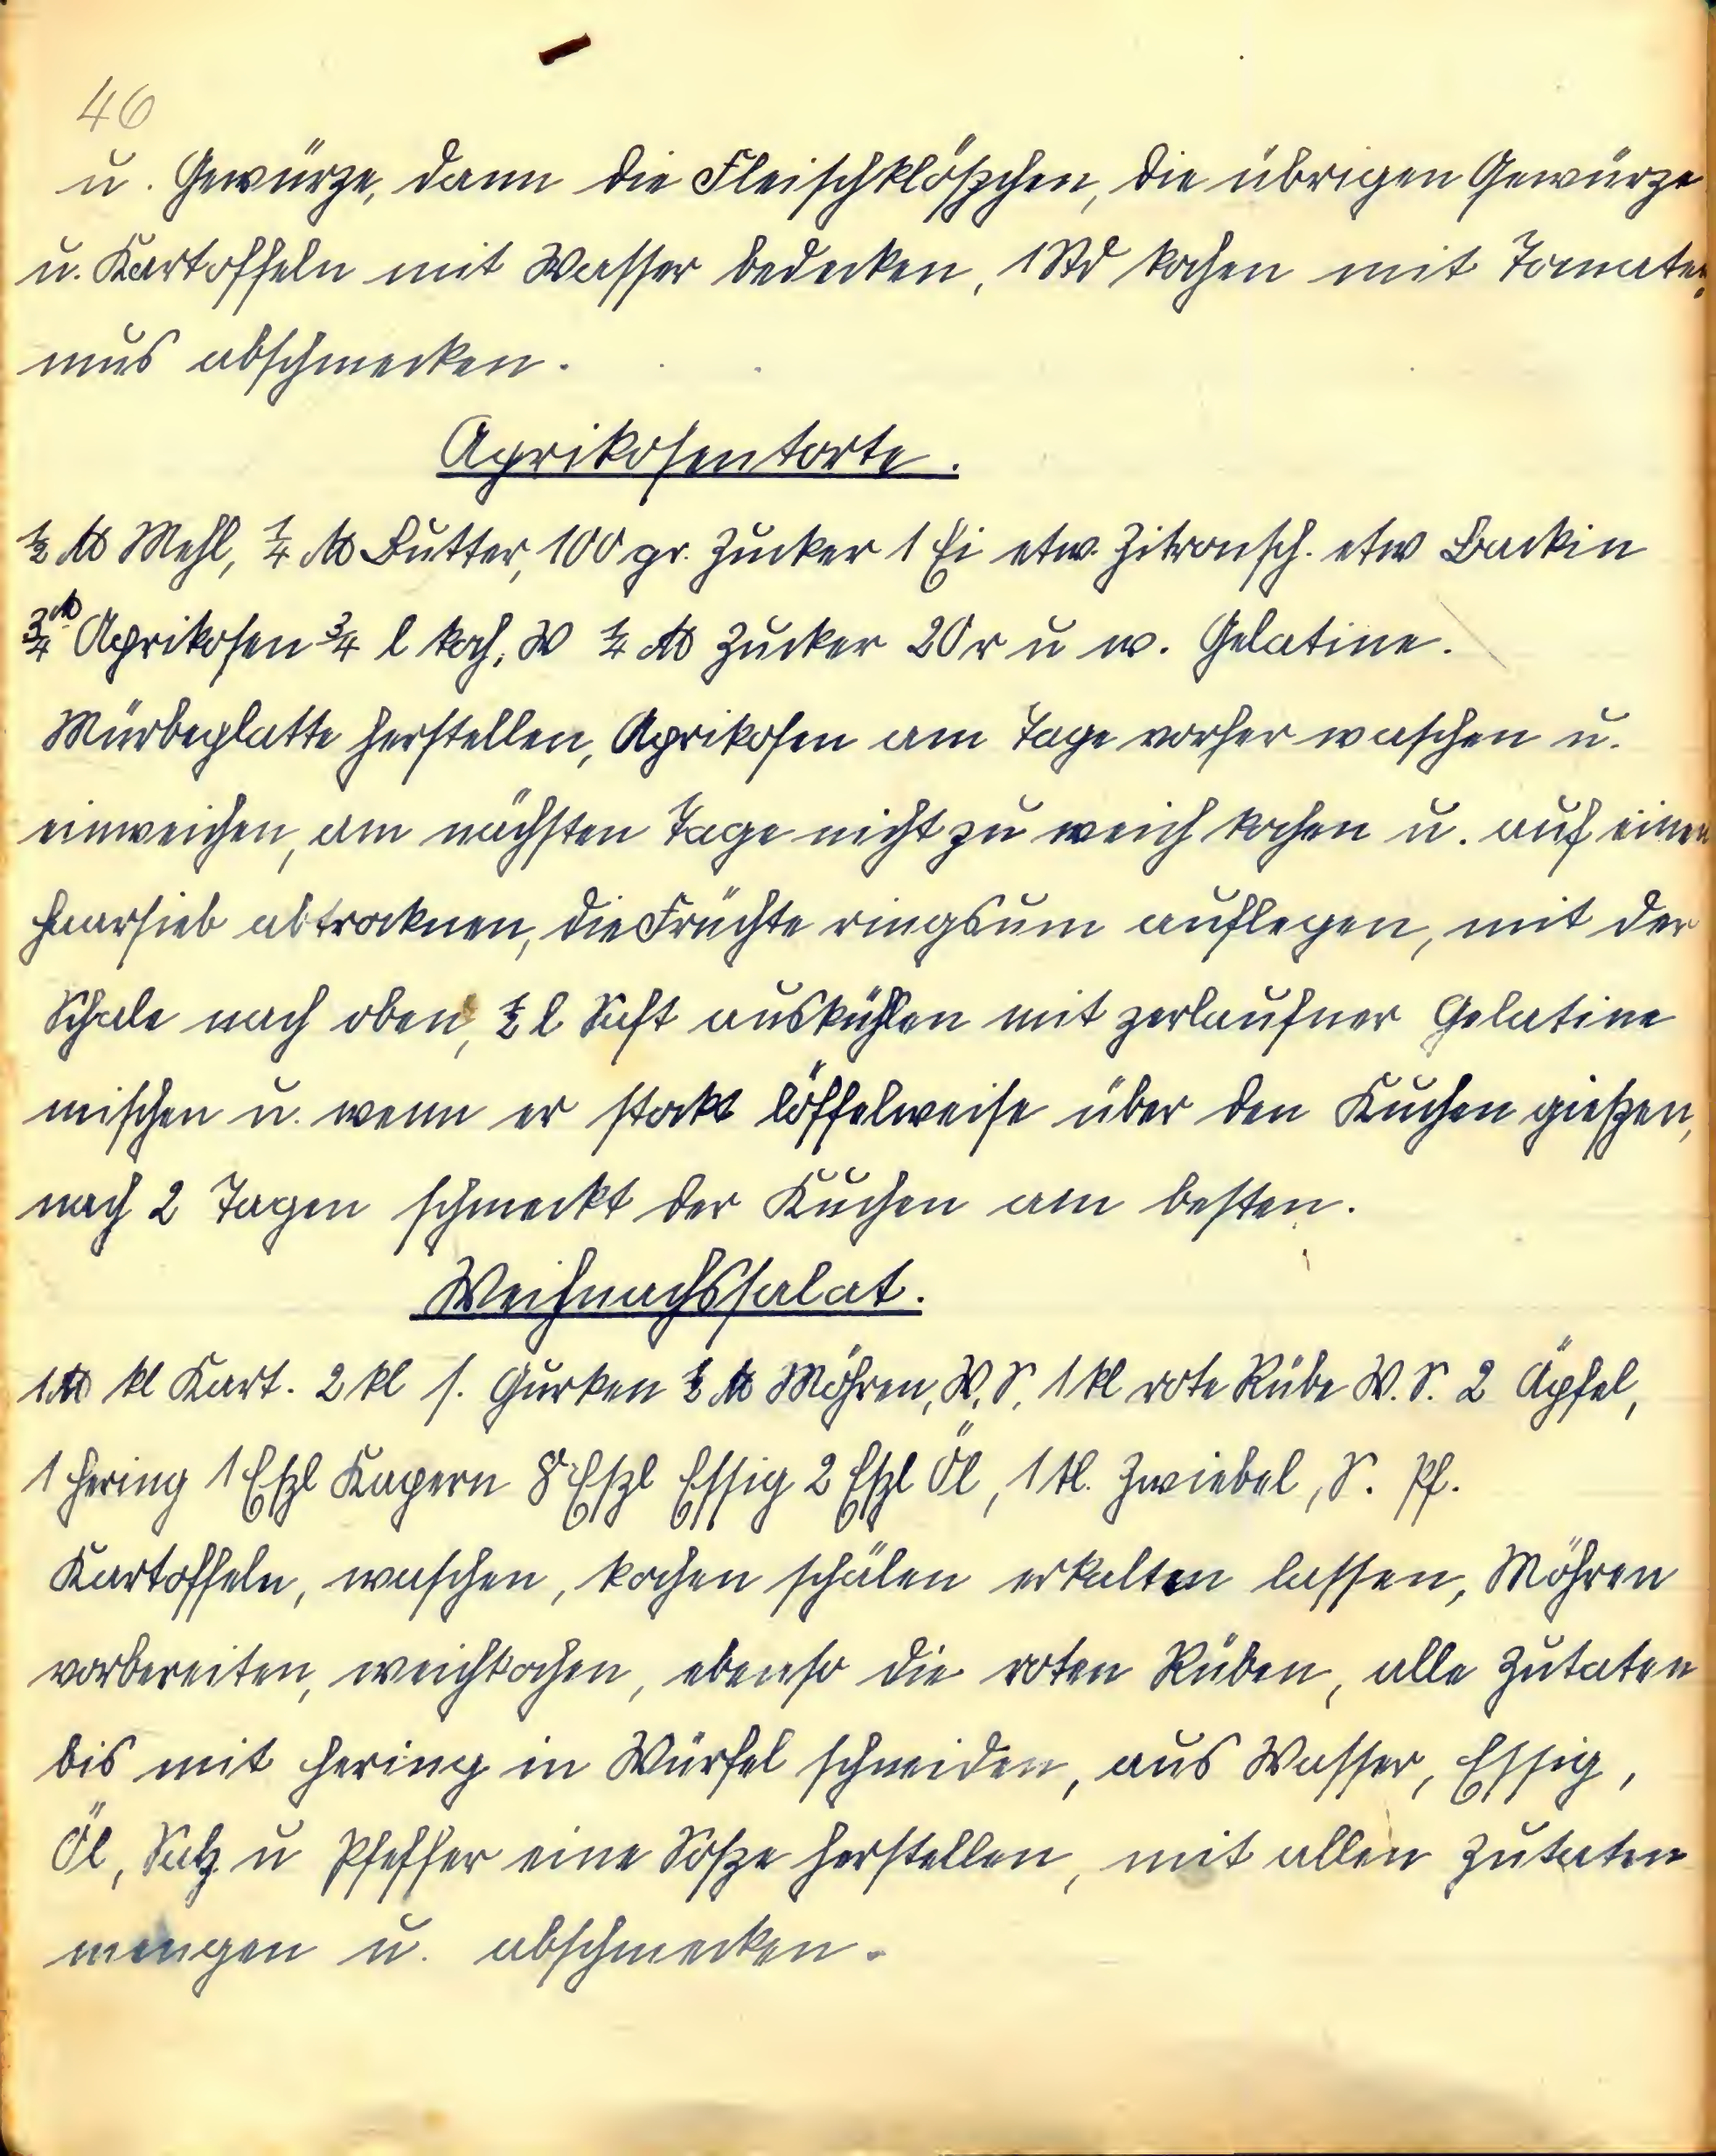 46
u. Gewürze, dann die Fleischklößchen, die übrigen Gewürze
u. Kartoffeln mit Wasser bedecken, 1 Std kochen mit Tomaten,
mus abschmecken.
Aprikosentorte.
½ ℔ Mehl, ¼ ℔ Butter, 100 gr. Zucker 1 Ei etw. Zitronsch. etw Backin
¾ ℔ Aprikosen ¾ l koch. W ¼ ℔ Zucker 20 r u w. Gelatine.
Mürbeplatte herstellen, Aprikosen am Tage vorher waschen u.
einweichen, am nächsten Tage nicht zu weich kochen u. auf einen
Haarsieb abtrocknen, die Früchte ringsum auflegen, mit der
Schale nach oben, ½ l Saft auskühlen mit zerlaufner Gelatine
mischen u. wenn er stockt löffelweise über den Kuchen gießen,
nach 2 Tagen schmeckt der Kuchen am besten.
Weihnachssalat.
1 ℔ kl Kart. 2 kl s. Gurken ½ ℔ Möhren, W. S, 1 kl rote Rübe W. S. 2 Äpfel,
1 Hering 1 Eßl Kapern 8 Eßl Essig 2 Eßl Öl, 1 kl. Zwiebel, S. Pf.
Kartoffeln, waschen, kochen schälen erkalten lassen, Möhren
vorbereiten, weichkochen, ebenso die roten Rüben, alle Zutaten
bis mit Hering in Würfel schneiden, aus Wasser, Essig,
Öl, Salz u Pfeffer eine Soße herstellen, mit allen Zutaten
mengen u. abschmecken.